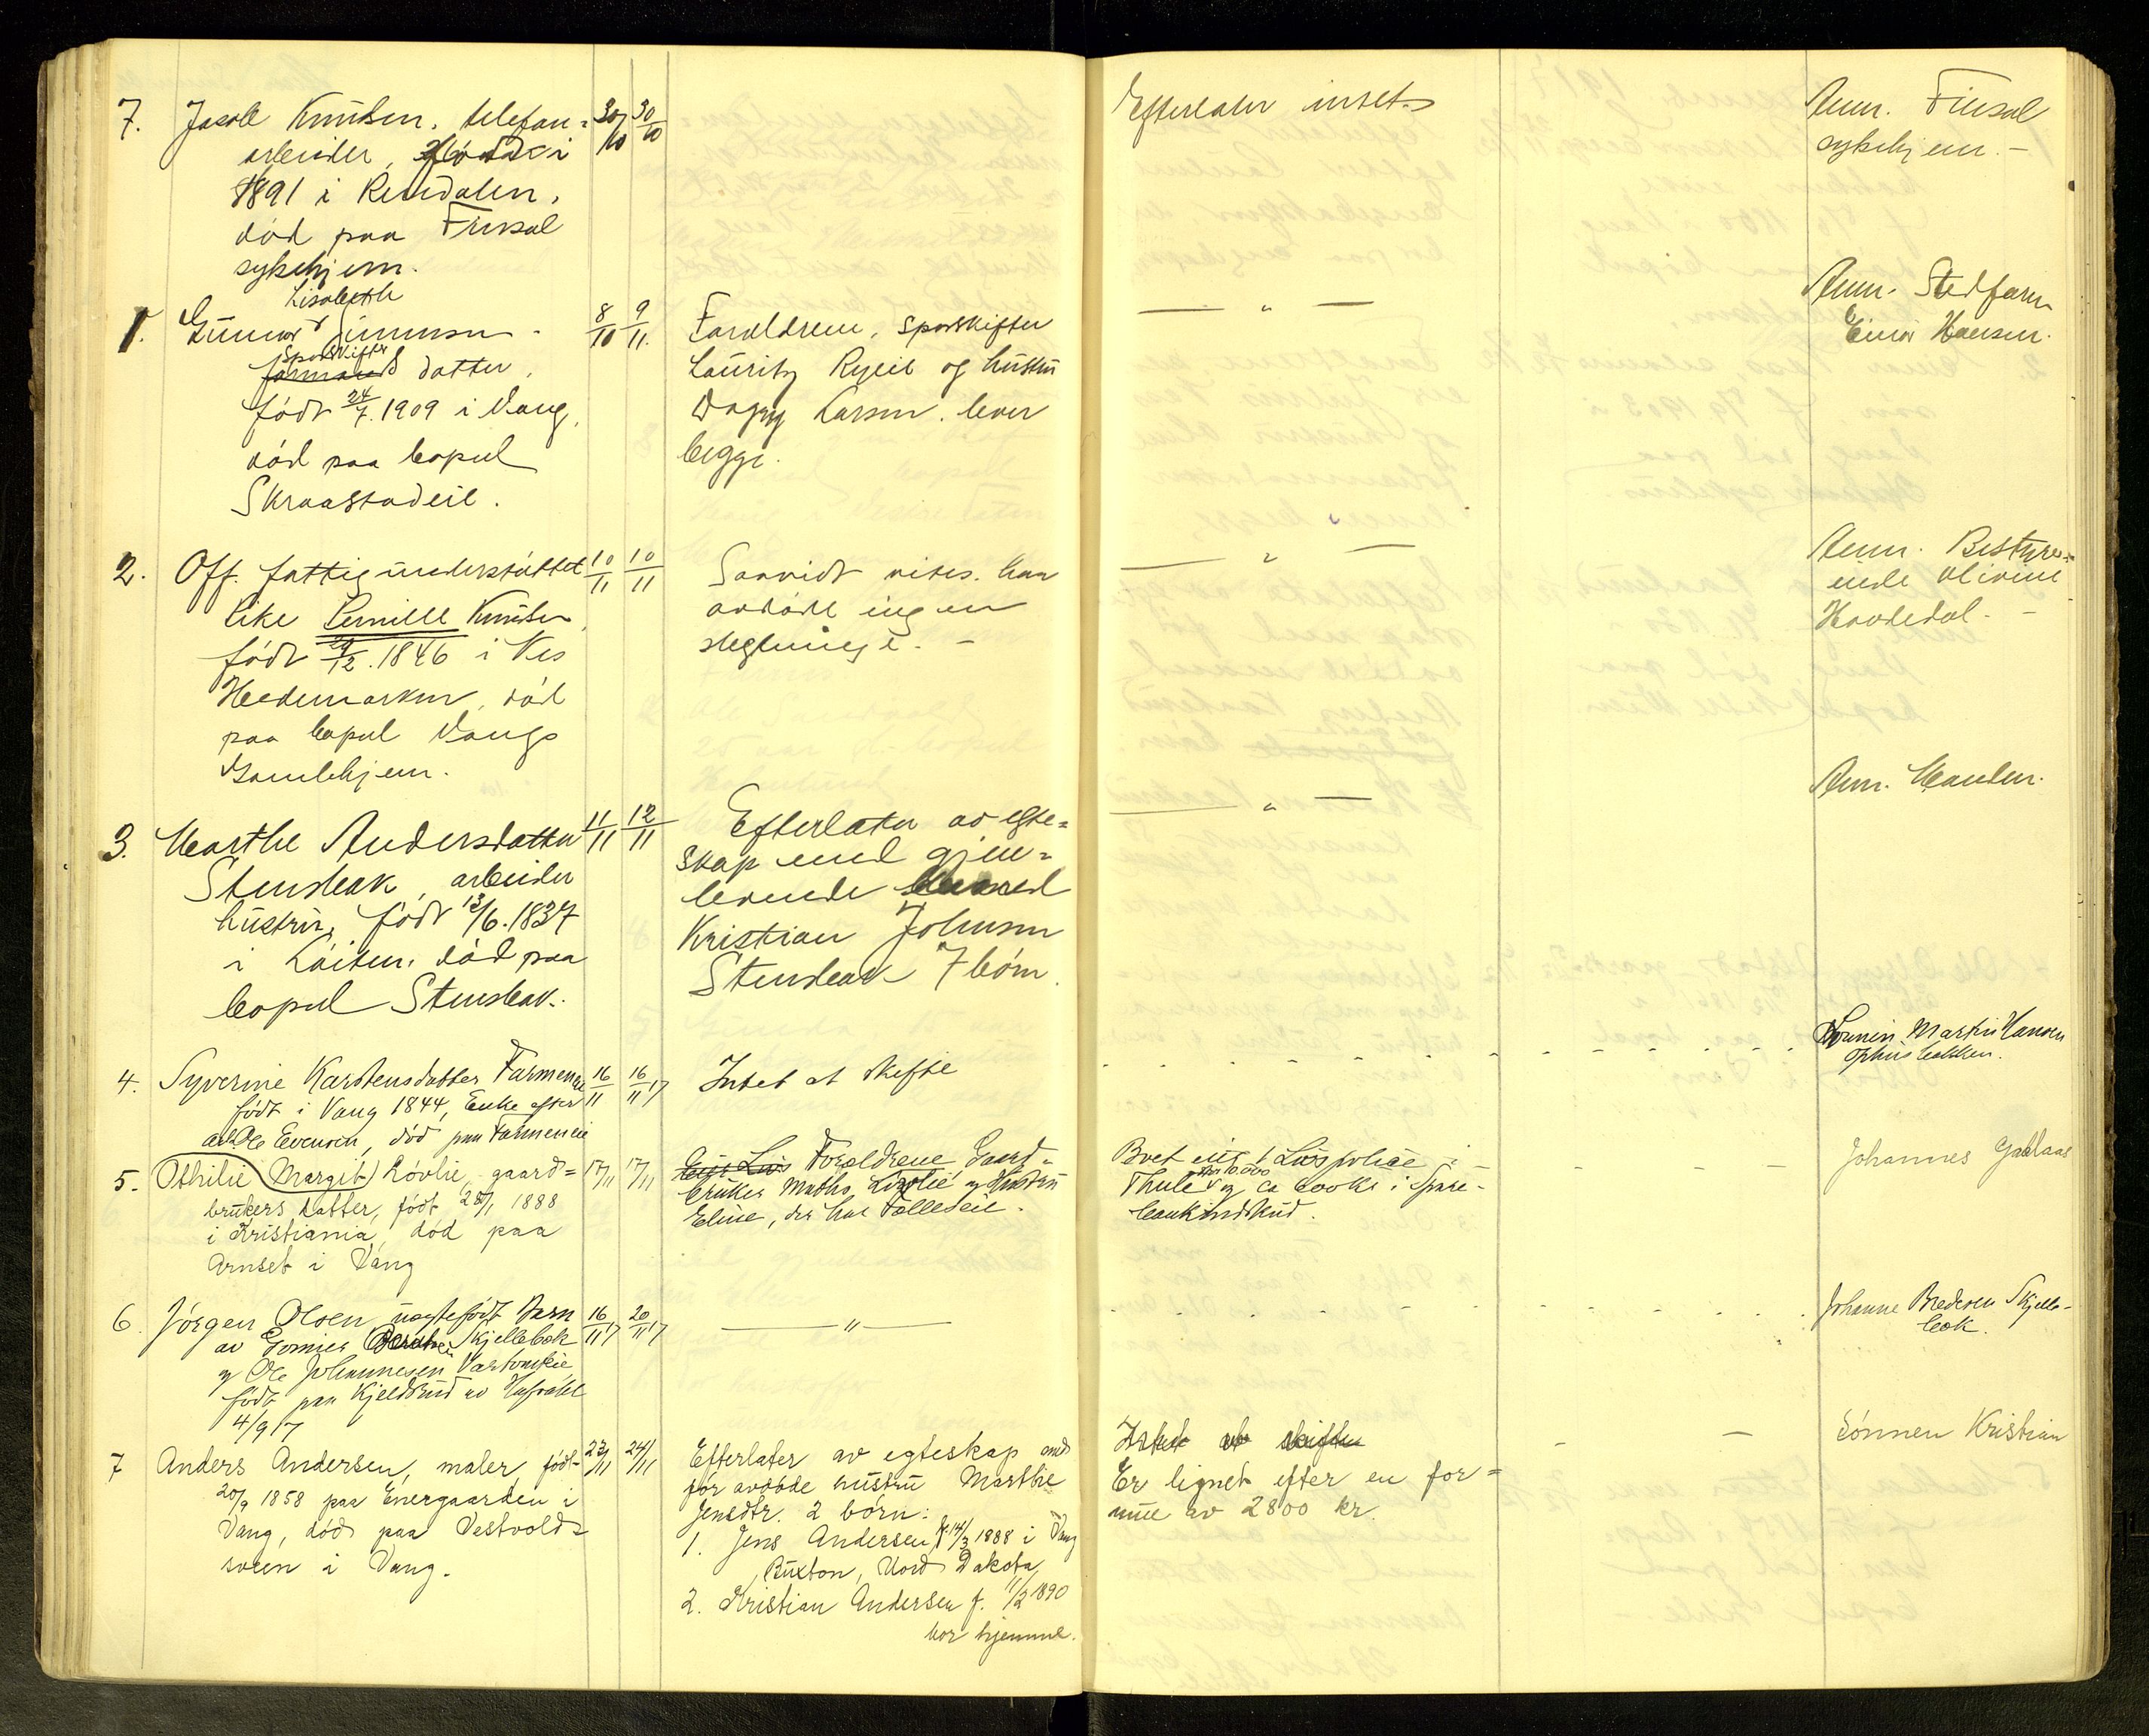 7. Jacob Knutsen, telefon=
arbeider, født i
1891 i Rendalen,
død paa Finsal
sykehjem.
30/10 30/10
Efterlater intet.
Anm. Finsal
sykehjem. -
1. Gunvor Lisabeth
sporskifter
formand datter,
født 24/7. 1909 i Vang,
død paa bopæl
Skraastadeie.
8/10 9/11.
Forældrene, sporskifter
Lauritz og hustru
Dagny Larsen. lever
begge.
— " —
Anm. Stedfaren
Einar Hansen.
2. Off. fattigunderstøttet
Pike Pernille Knutsen,
født 29/12. 1846 i Nes
Hedemarken, død
paa bopæl Vangs
Gamlehjem.
10/11 10/11
Saavidt vites har
avdøde ingen
slegtninge. -
— " —
Anm. Bestyrer=
inde Olivine
Hovdedal. -
3. Marthe Andersdatter
Stensbak, arbeider
hustru, født 13/6. 1837
i Løiten, død paa
bopæl Stensbak.
11/11 12/11
Efterlater av egte=
skap med gjen=
levende
Kristian Johnsen
Stensbak 7 børn.
— " —
Anm. Manden.
4. Syverine Karstensdatter Farmeneie
født i Vang 1844, Enke efter
Ole Evensen, død paa Farmeneie
16/11 16/11 17
Intet at skifte
Martin Hansen
5. Othilie (Margit) Løvlie, gaard=
brukers datter, født 28/1 1888
i Kristiania, død paa
Arnset i Vang
17/11 17/11
Forældrene Gaard=
bruker Mathis Løvlie og Hustru
Eline, der har Fælleseie.
Livspolice i
Thule 10.000 og ca i Spare=
bankindskud.
Johannes Gaalaas
6. Jørgen Olsen uegtefødt Barn
av Skjellebæk
og Ole Johannesen
født paa Kjeldsrud
4/9 17
16/11 17 20/11 17
— " —
Johanne Skjelle=
bæk.
7 Anders Andersen, maler, født
20/9 1858 paa Energaarden i
Vang, død paa Vestvold=
sveen i Vang.
23/11 24/11
Efterlater av egteskap med
før avdøde hustru Marthe
Jensdtr. 2 børn:
1. Jens Andersen, f. 14/3 1888 i Vang
Buxton, Nord Dakota,
2. Kristian Andersen f. 11/2 1890
bor hjemme.
Intet at skifte
Er lignet efter en for=
mue av 2800 kr.
Sønnen Kristian